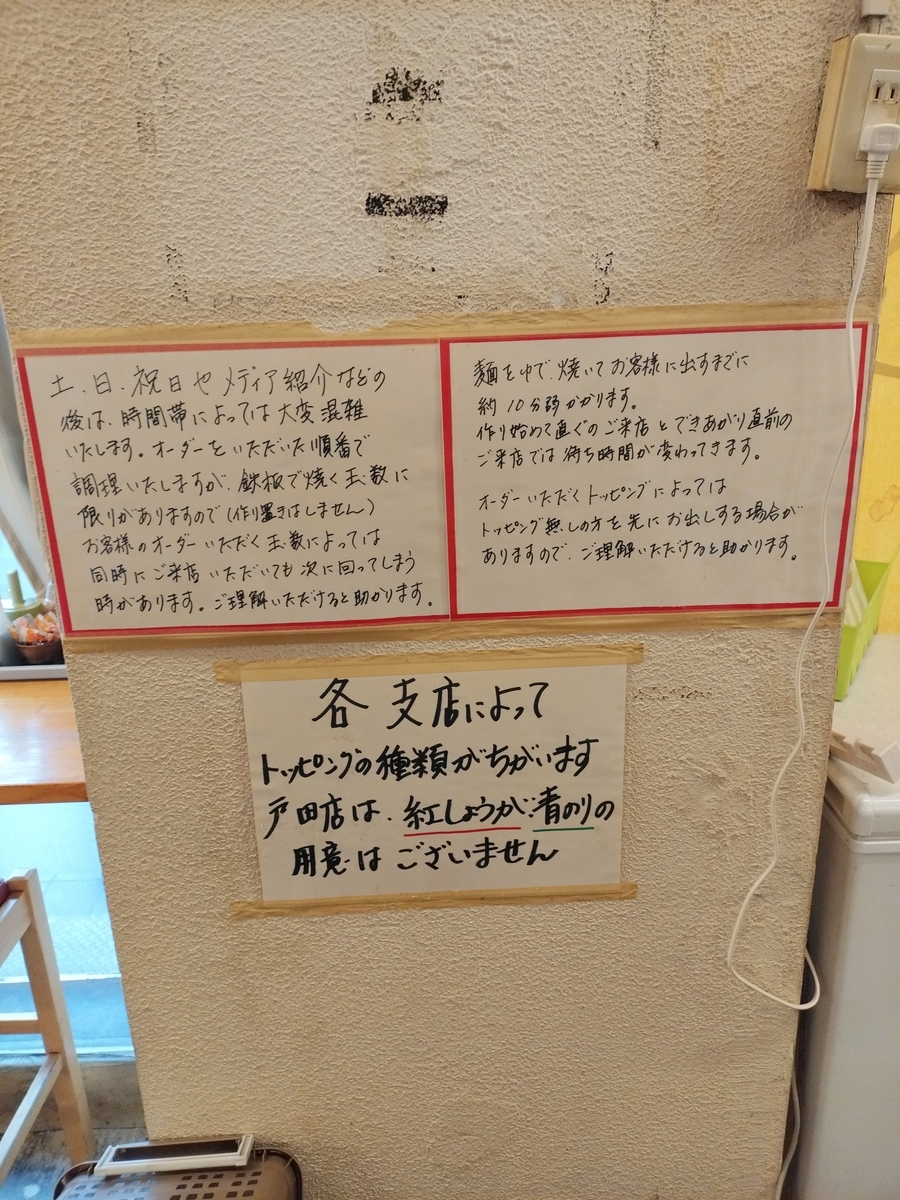 土、日、祝日やメディア紹介などの
後は、時間帯によっては大変混雑
いたします。オーダーをいただいた順番で
調理いたしますが、鉄板で焼く玉数に
限りがありますので(作り置きはしません)
お客様のオーダーいただく玉数によっては
同時にご来店いただいても次に回ってしまう
時があります。ご理解いただけると助かります。
麺をゆで、焼いてお客様に出すまでに
約10分弱かかります。
作り始めて直ぐのご来店とできあがり直前の
ご来店では待ち時間が変わってきます。
オーダーいただくトッピングによっては
トッピング無しの方を先にお出しする場合が
ありますので、ご理解いただけると助かります。
各支店によって
トッピングの種類がちがいます
戸田店は、紅しょうが、青のりの
用意はございません